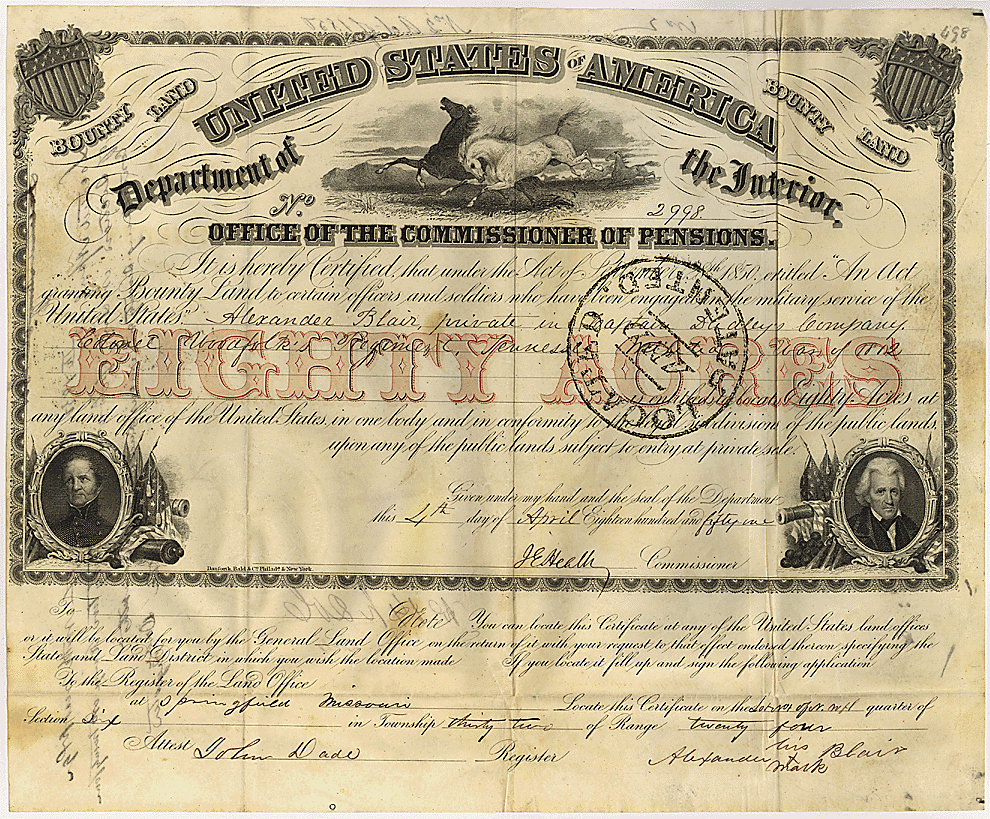 498
UNITED STATES OF AMERICA
BOUNTY LAND
BOUNTY LAND
Department of the Interior,
No 2998
OFFICE OF THE COMMISSIONER OF PENSIONS.
It is hereby Certified, that under the Act of 1850, entitled "An Act
granting Bounty Land to certain officers and soldiers who have been engaged in the military service of the
United States" Alexander Blair private in Captain Company
Colonel Regiment Tennessee War of 1812
EIGHTY ACRES
is entitled to locate Eighty Acres at
any land office of the United States, in one body and in conformity to divisions of the public lands,
upon any of the public lands subject to entry at private sale.
LOCATED CANCELED
Given under my hand and the seal of the Department
this 4th day of April Eighteen hundred and fifty one
J E Heath Commissioner
Danforth, Bald & Co. Philada. & New York.
To
Note You can locate this Certificate at any of the United States land offices
or it will be located for you by the General Land Office on the return of it with your request to that effect endorsed thereon specifying the
State and Land District in which you wish the location made If you locate it fill up and sign the following application
To the Register of the Land Office
at Springfield Missouri Locate this Certificate on the quarter of
Section Six in Township thirty two of Range twenty four
Attest John Dade Register Alexander his x mark Blair